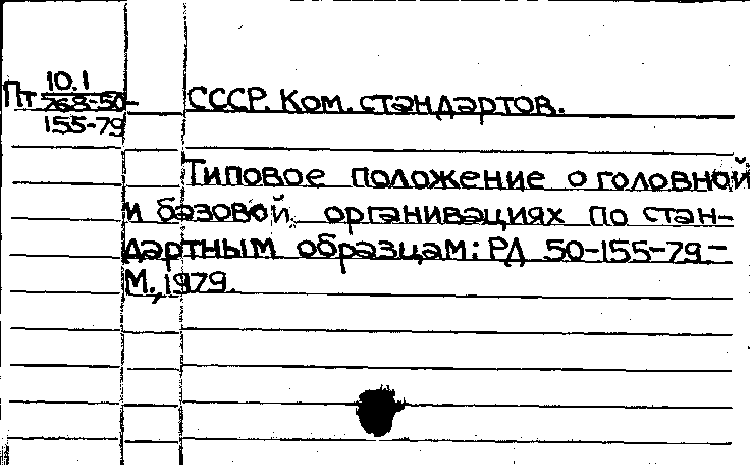 10.1
Пт 768-50-
155-79
СССР. Ком. стандартов.
Типовое положение о головной
и базовой организациях по стан-
дартным образцам: РД 50-155-79.-
М., 1979.